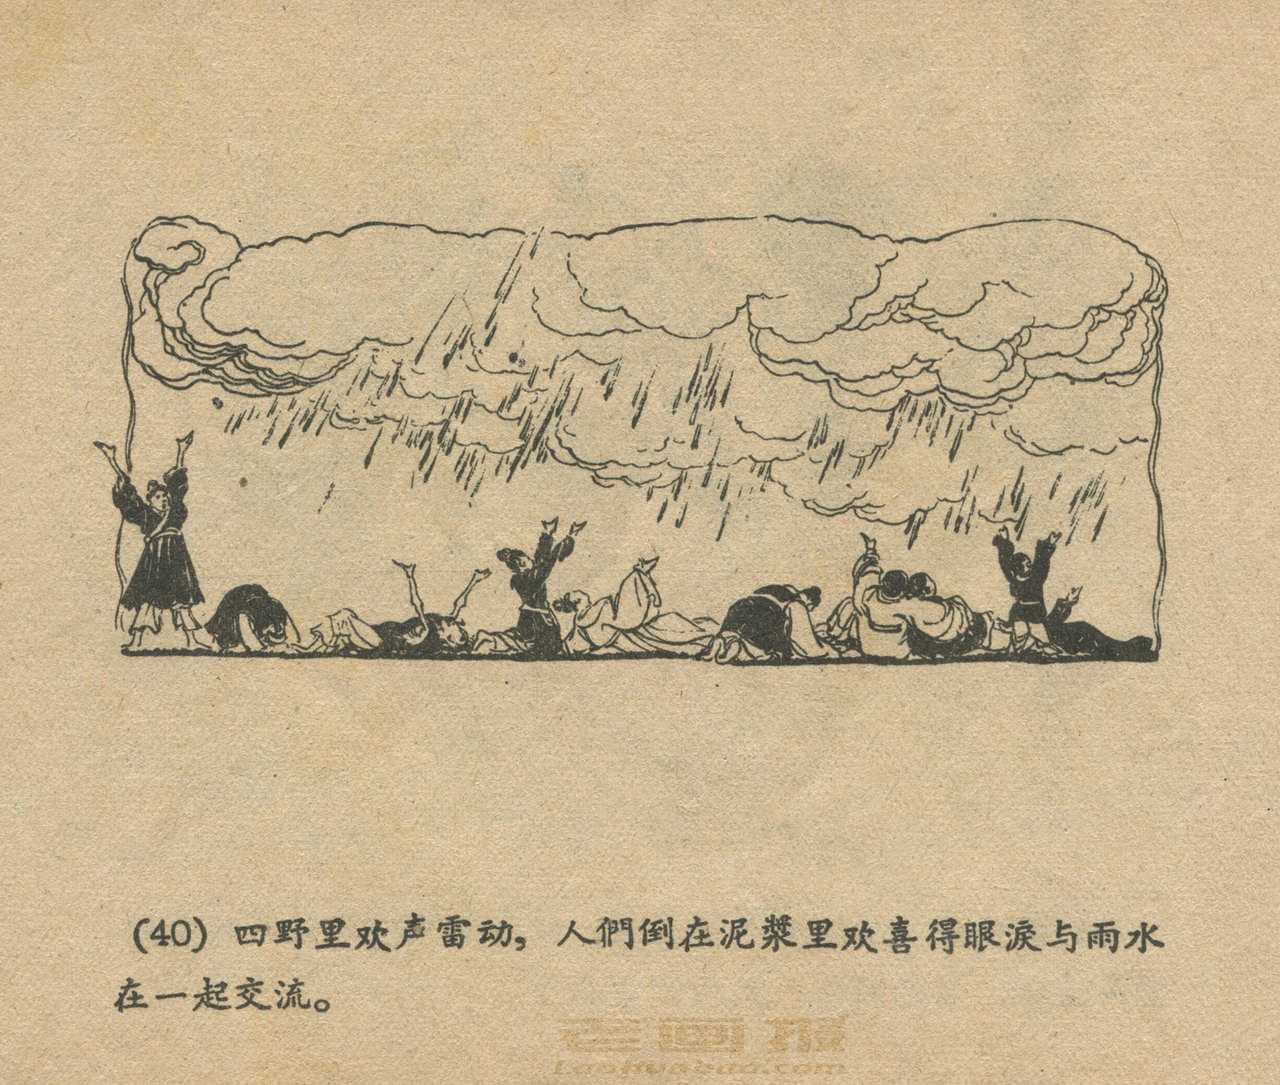 (40) 四野里欢声雷动，人們倒在泥漿里欢喜得眼淚与雨水
在一起交流。
老画报
Laohuabao.com